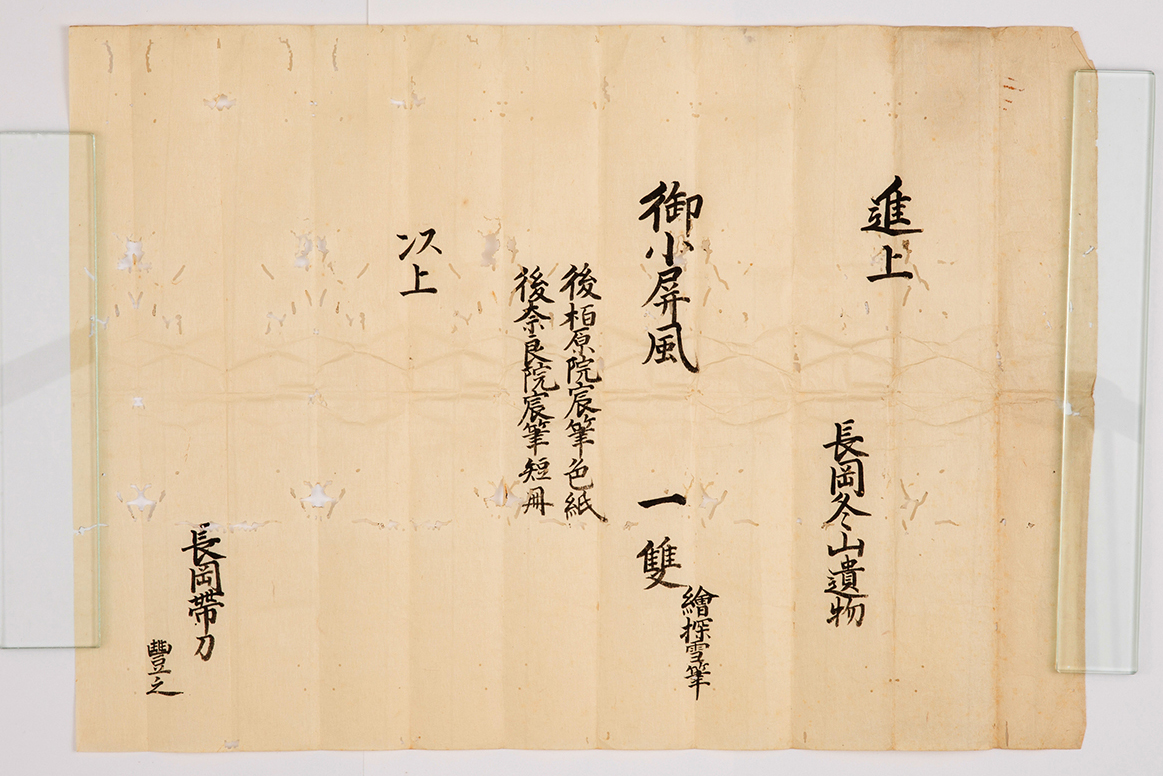 進上
長岡冬山遺物
御小屏風 一雙
繪探雪筆
後柏原院宸筆色紙
後奈良院宸筆短冊
以上
長岡帶刀
豐之